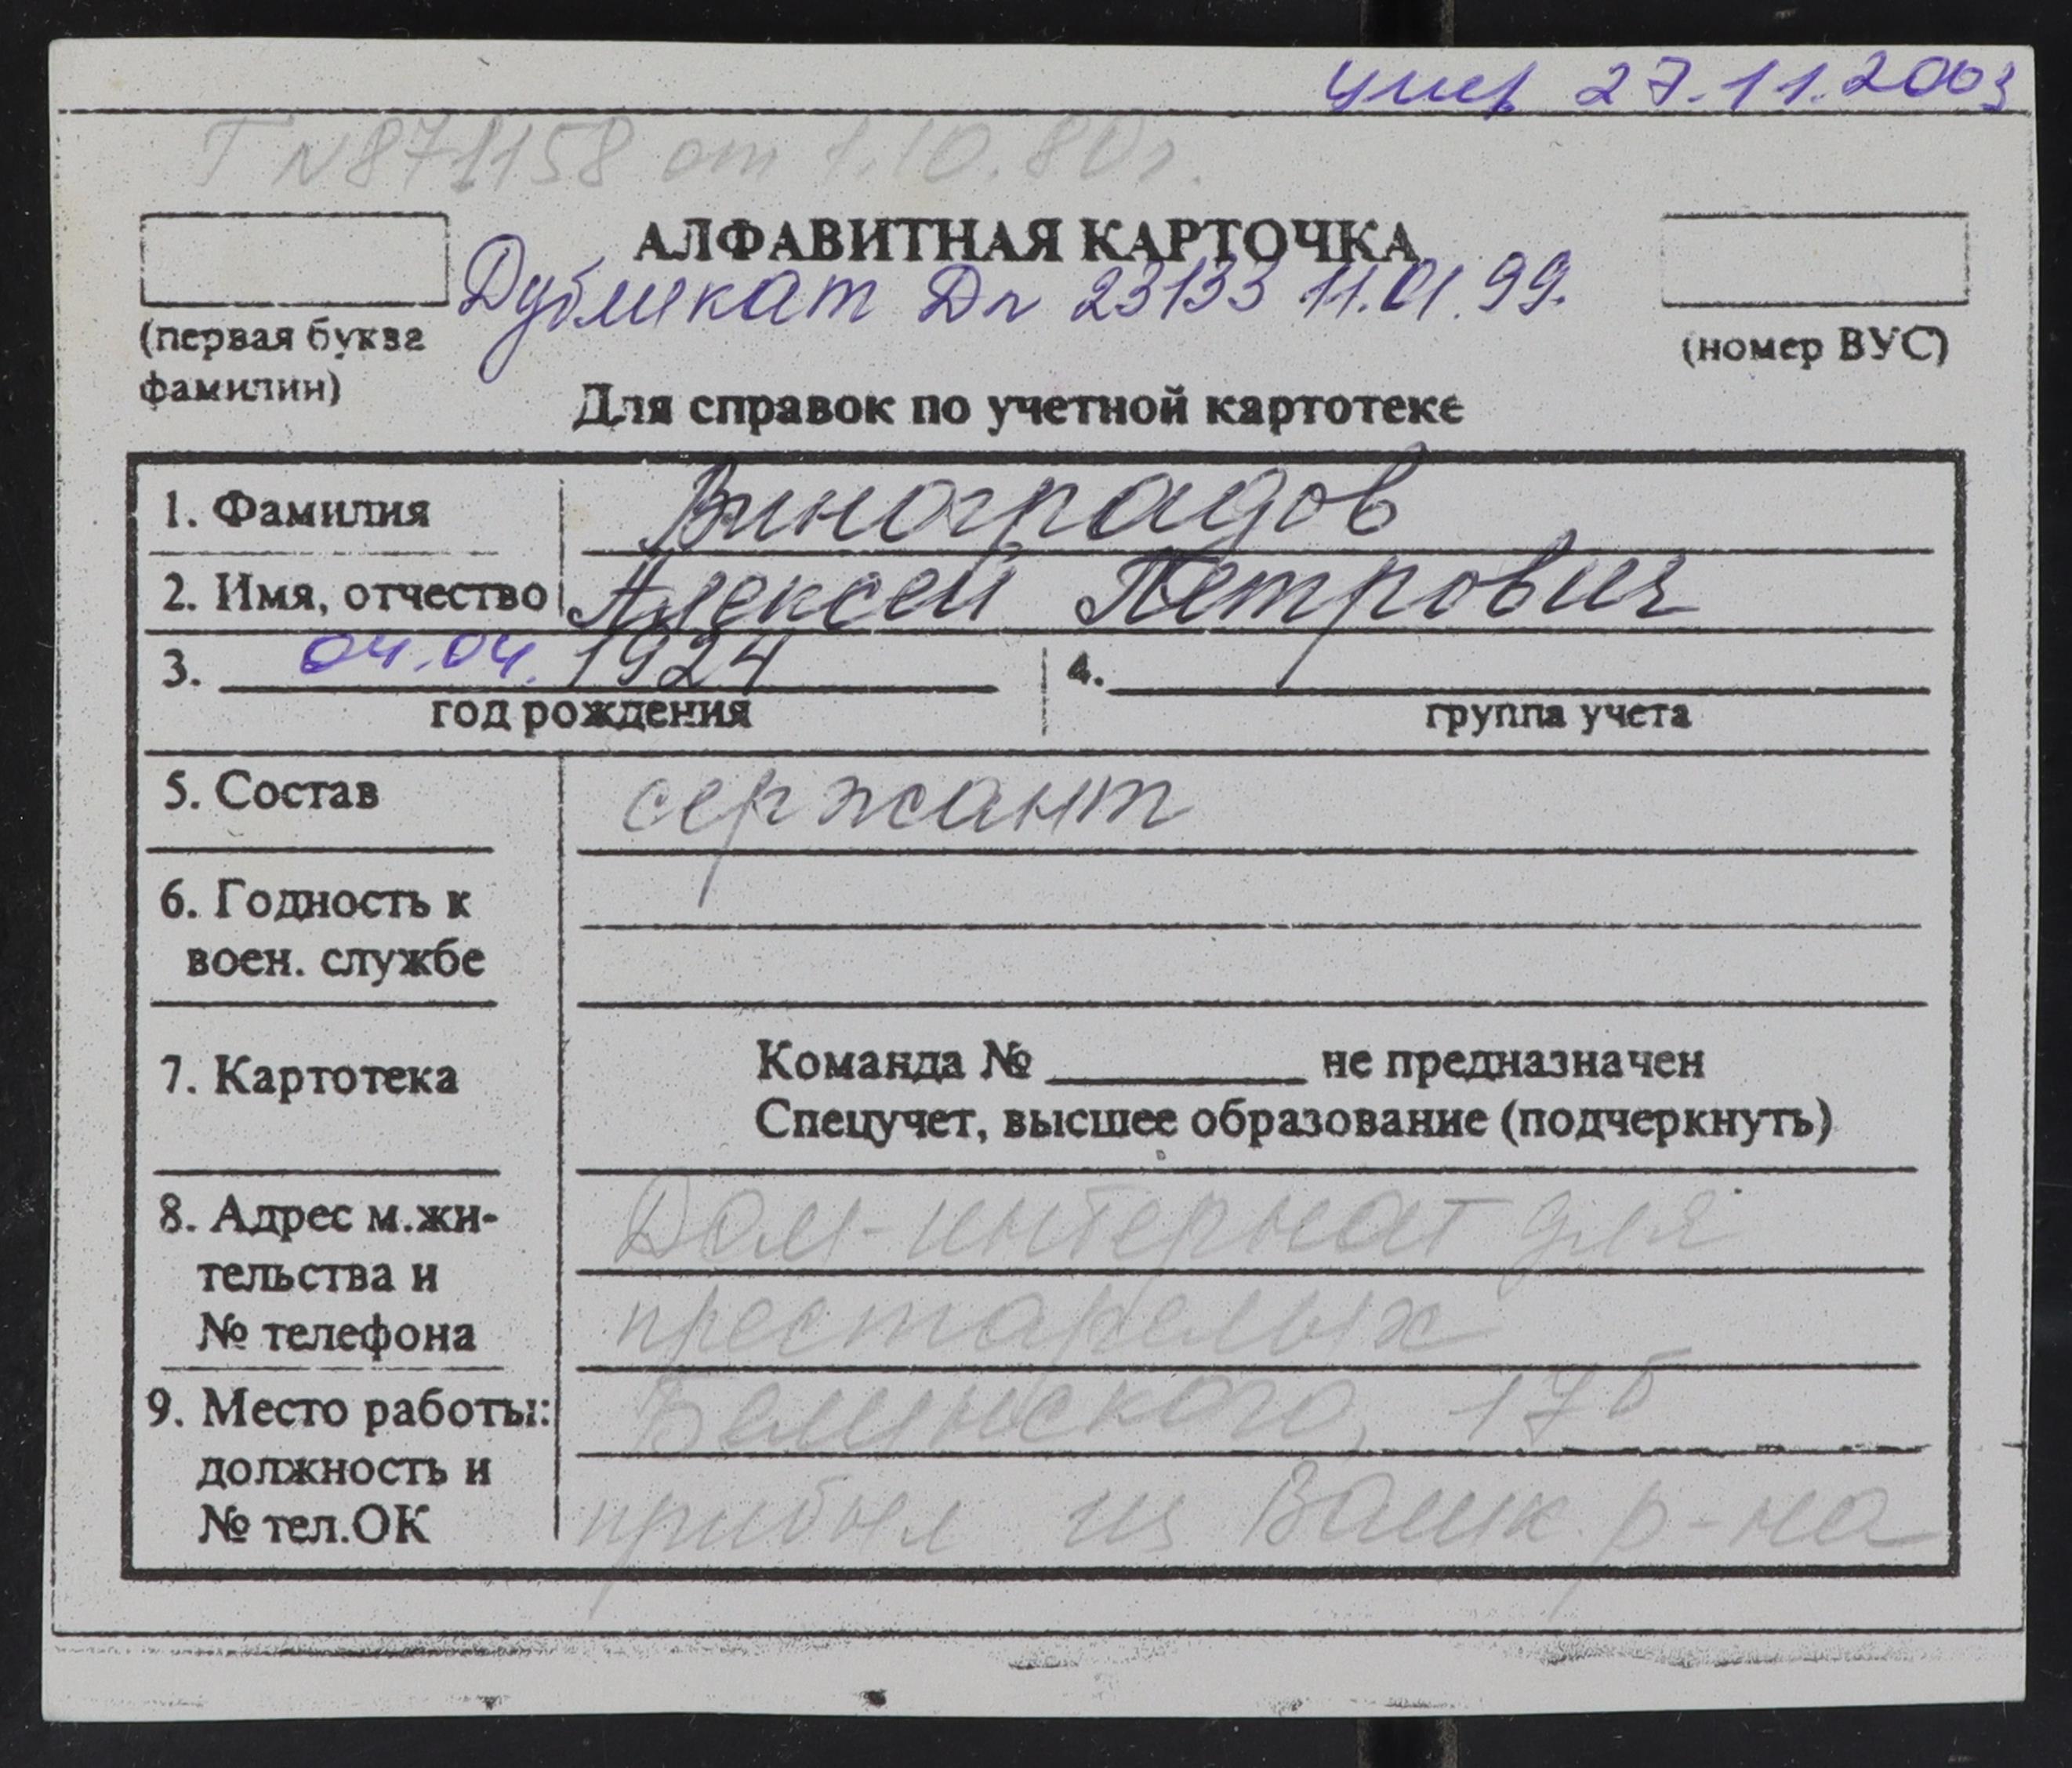 умер 27.11.2003
Г N871158 от 1.10.80г.
АЛФАВИТНАЯ КАРТОЧКА
Дубликат Дл 23133 11.01.99.
(первая буква
фамилии)
(номер ВУС)
Для справок по учетной картотеке
1. Фамилия Виноградов
2. Имя, отчество Алексей Петрович
3. 04.04. 1924 4.
год рождения группа учета
5. Состав сержант
6. Годность к
воен. службе
7. Картотека
Команда № ________ не предназначен
Спецучет, высшее образование (подчеркнуть)
8. Адрес м.жи-
тельства и
№ телефона
Дом-интернат для
престарелых
9. Место работы:
должность и
№ тел.ОК
Белинского, 17б
прибыл из Вашк р-на